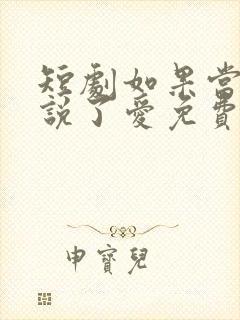 短劇如果當
說了愛免費
申寶兒